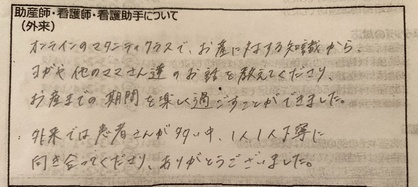 助産師・看護師・看護助手について
(外来)
オンラインのマタニティクラスで、お産に対する知識から、
ヨガや他のママさん達のお話を教えてくださり、
お産までの期間を楽しく過ごすことができました。
外来では患者さんが多い中、1人1人丁寧に
向き合ってくださり、ありがとうございました。